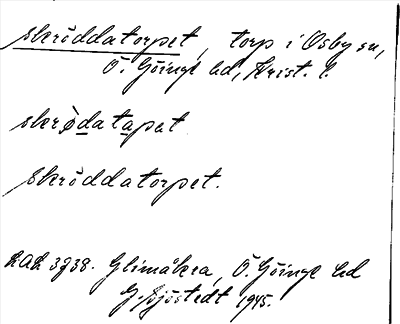 Skröddatorpet, torp i Osby sn,
Ö. Göinge hd, Krist. l.
skrø̀datapat
Skröddatorpet.
Glimåkra, Ö. Göinge hd
G. Sjöstedt 1945.